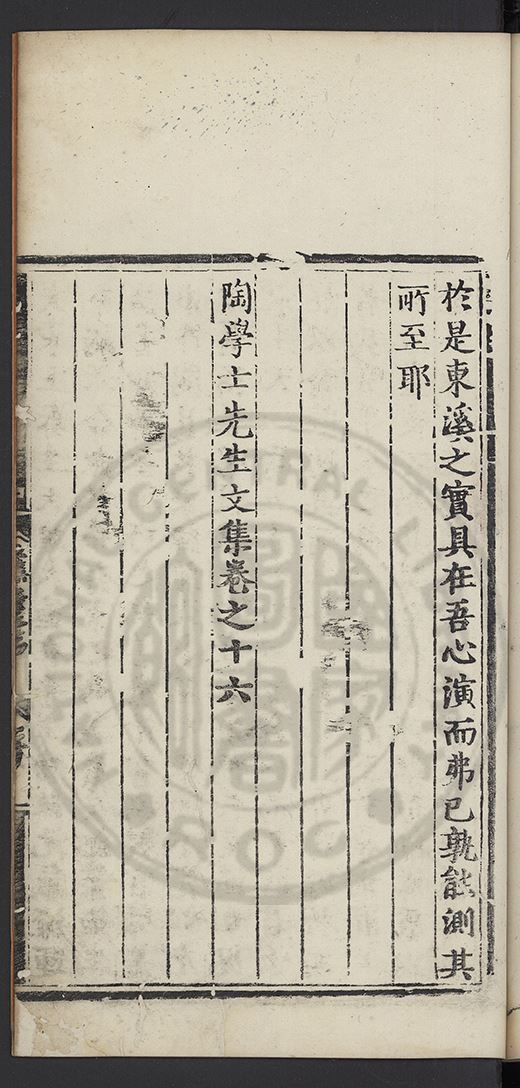 於是東溪之實具在吾心演而弗已孰能測其
所至耶
陶學士先生文集卷之十六